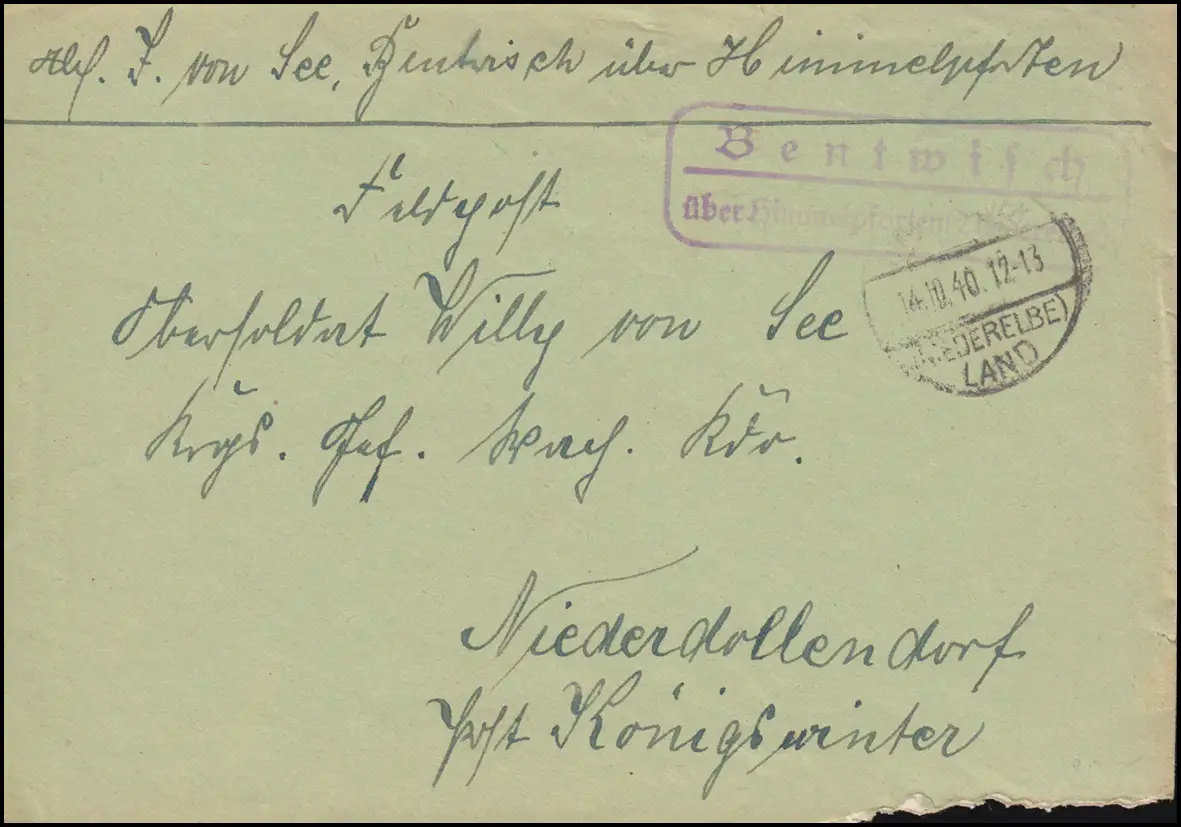 Abs. J. von See, Bentwisch über Himmelpforten
Bentwisch
über Himmelpforten
Feldpost
14.10.40.12-13
(NIEDERELBE)
LAND
Obersoldat Willy von See
Krgs. Gef. Wach. Kdo.
Niederdollendorf
Post Königswinter